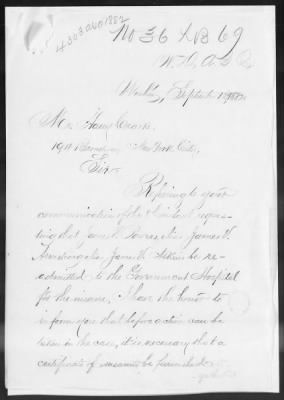 4303 AGO 1882
No 36 LB 69
W. D., A. G. O.
Washn, September 1882
Mr. Harry
Broadway New York City,
Sir:
Refering to your
communication of the instant reques-
ting that James
James be re-
admitted to the Government Hospital
for the insane, I have the honor to
inform you that before action can be
taken in the case, it is necessary that a
certificate of insanity be furnished